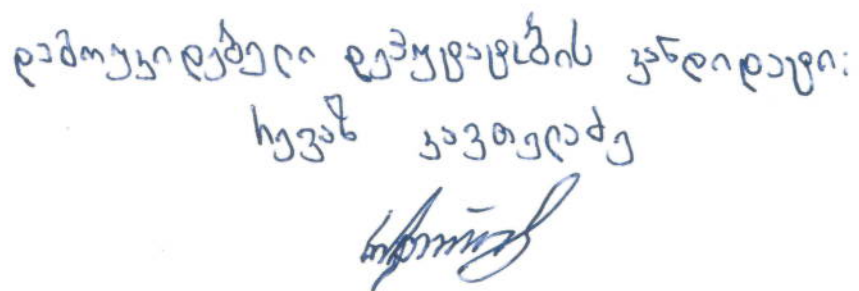 დამოუკიდებელი დეპუტატობის კანდიდატი:
რევაზ კავთელაძე